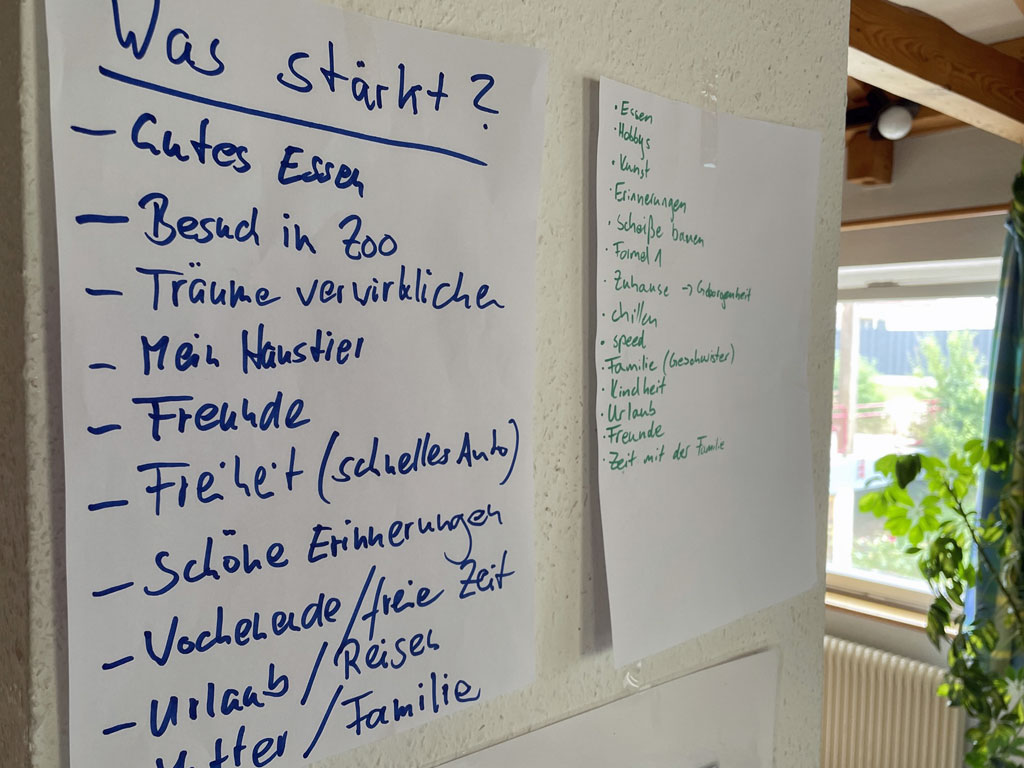 Was stärkt?
- Gutes Essen
- Besuch in Zoo
- Träume vervirklichen
- Mein Haustier
- Freunde
- Freiheit (schnelles Auto)
- Schöne Erinnerungen
- Vochenende / freie Zeit
- Urlaub / Reisen
Mutter / Familie
· Essen
· Hobbys
· Kunst
· Erinnerungen
· Scheiße bauen
· Formel 1
· Zuhause → Geborgenheit
· chillen
· speed
· Familie (Geschwister)
· Kindheit
· Urlaub
· Freunde
· Zeit mit der Familie